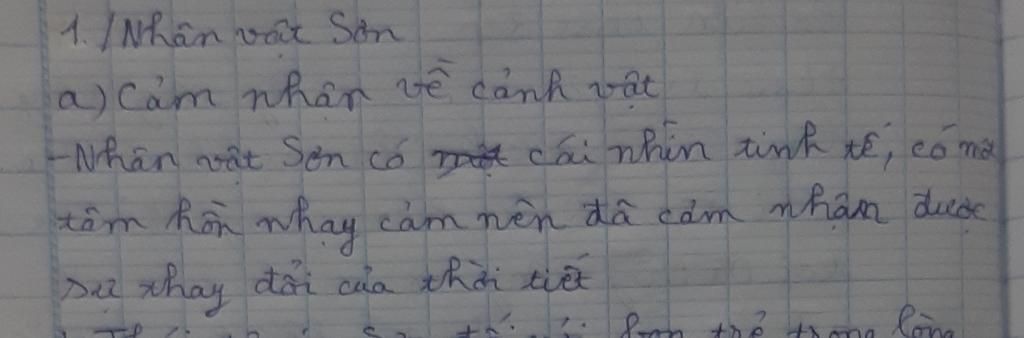 1. / Nhân vật Sơn
a) Cảm nhận về cảnh vật
- Nhân vật Sơn có một cái nhìn tinh tế, có một
tâm hồn nhạy cảm nên đã cảm nhận được
sự thay đổi của thời tiết
trong lòng